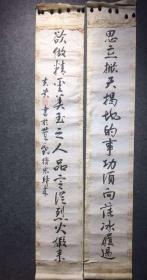 思立掀天揭地的事功須向薄冰履過
欲做精金美玉之人品定從烈火煅來
書於